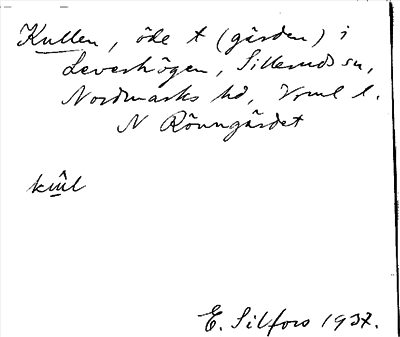 Kullen, öde t (gården) i
Leverhögen, Sillerud sn,
Nordmarks hd, Vrml l.
N Rönngärdet
kɯ̂l
E. Silfors 1937.